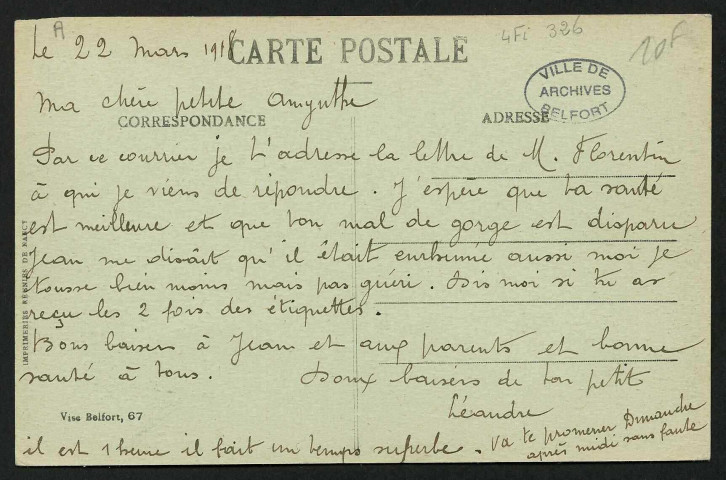 A
4Fi 326
10F
Le 22 Mars 1918
CARTE POSTALE
VILLE DE
ARCHIVES
BELFORT
Ma chère petite Amynthe
CORRESPONDANCE
ADRESSE
Par ce courrier je t'adresse la lettre de M. Florentin
à qui je viens de répondre. J'espère que ta santé
est meilleure et que ton mal de gorge est disparu
Jean me disait qu'il était enrhumé aussi moi je
tousse bien moins mais pas guéri. Dis moi si tu as
reçu les 2 fois des étiquettes.
Bons baisers à Jean et aux parents et bonne
santé à tous. Doux baisers de ton petit
Léandre
Vise Belfort, 67
il est 1 heure il fait un temps superbe. Va te promener Dimanche
après midi sans faute
IMPRIMERIES RÉUNIES DE NANCY